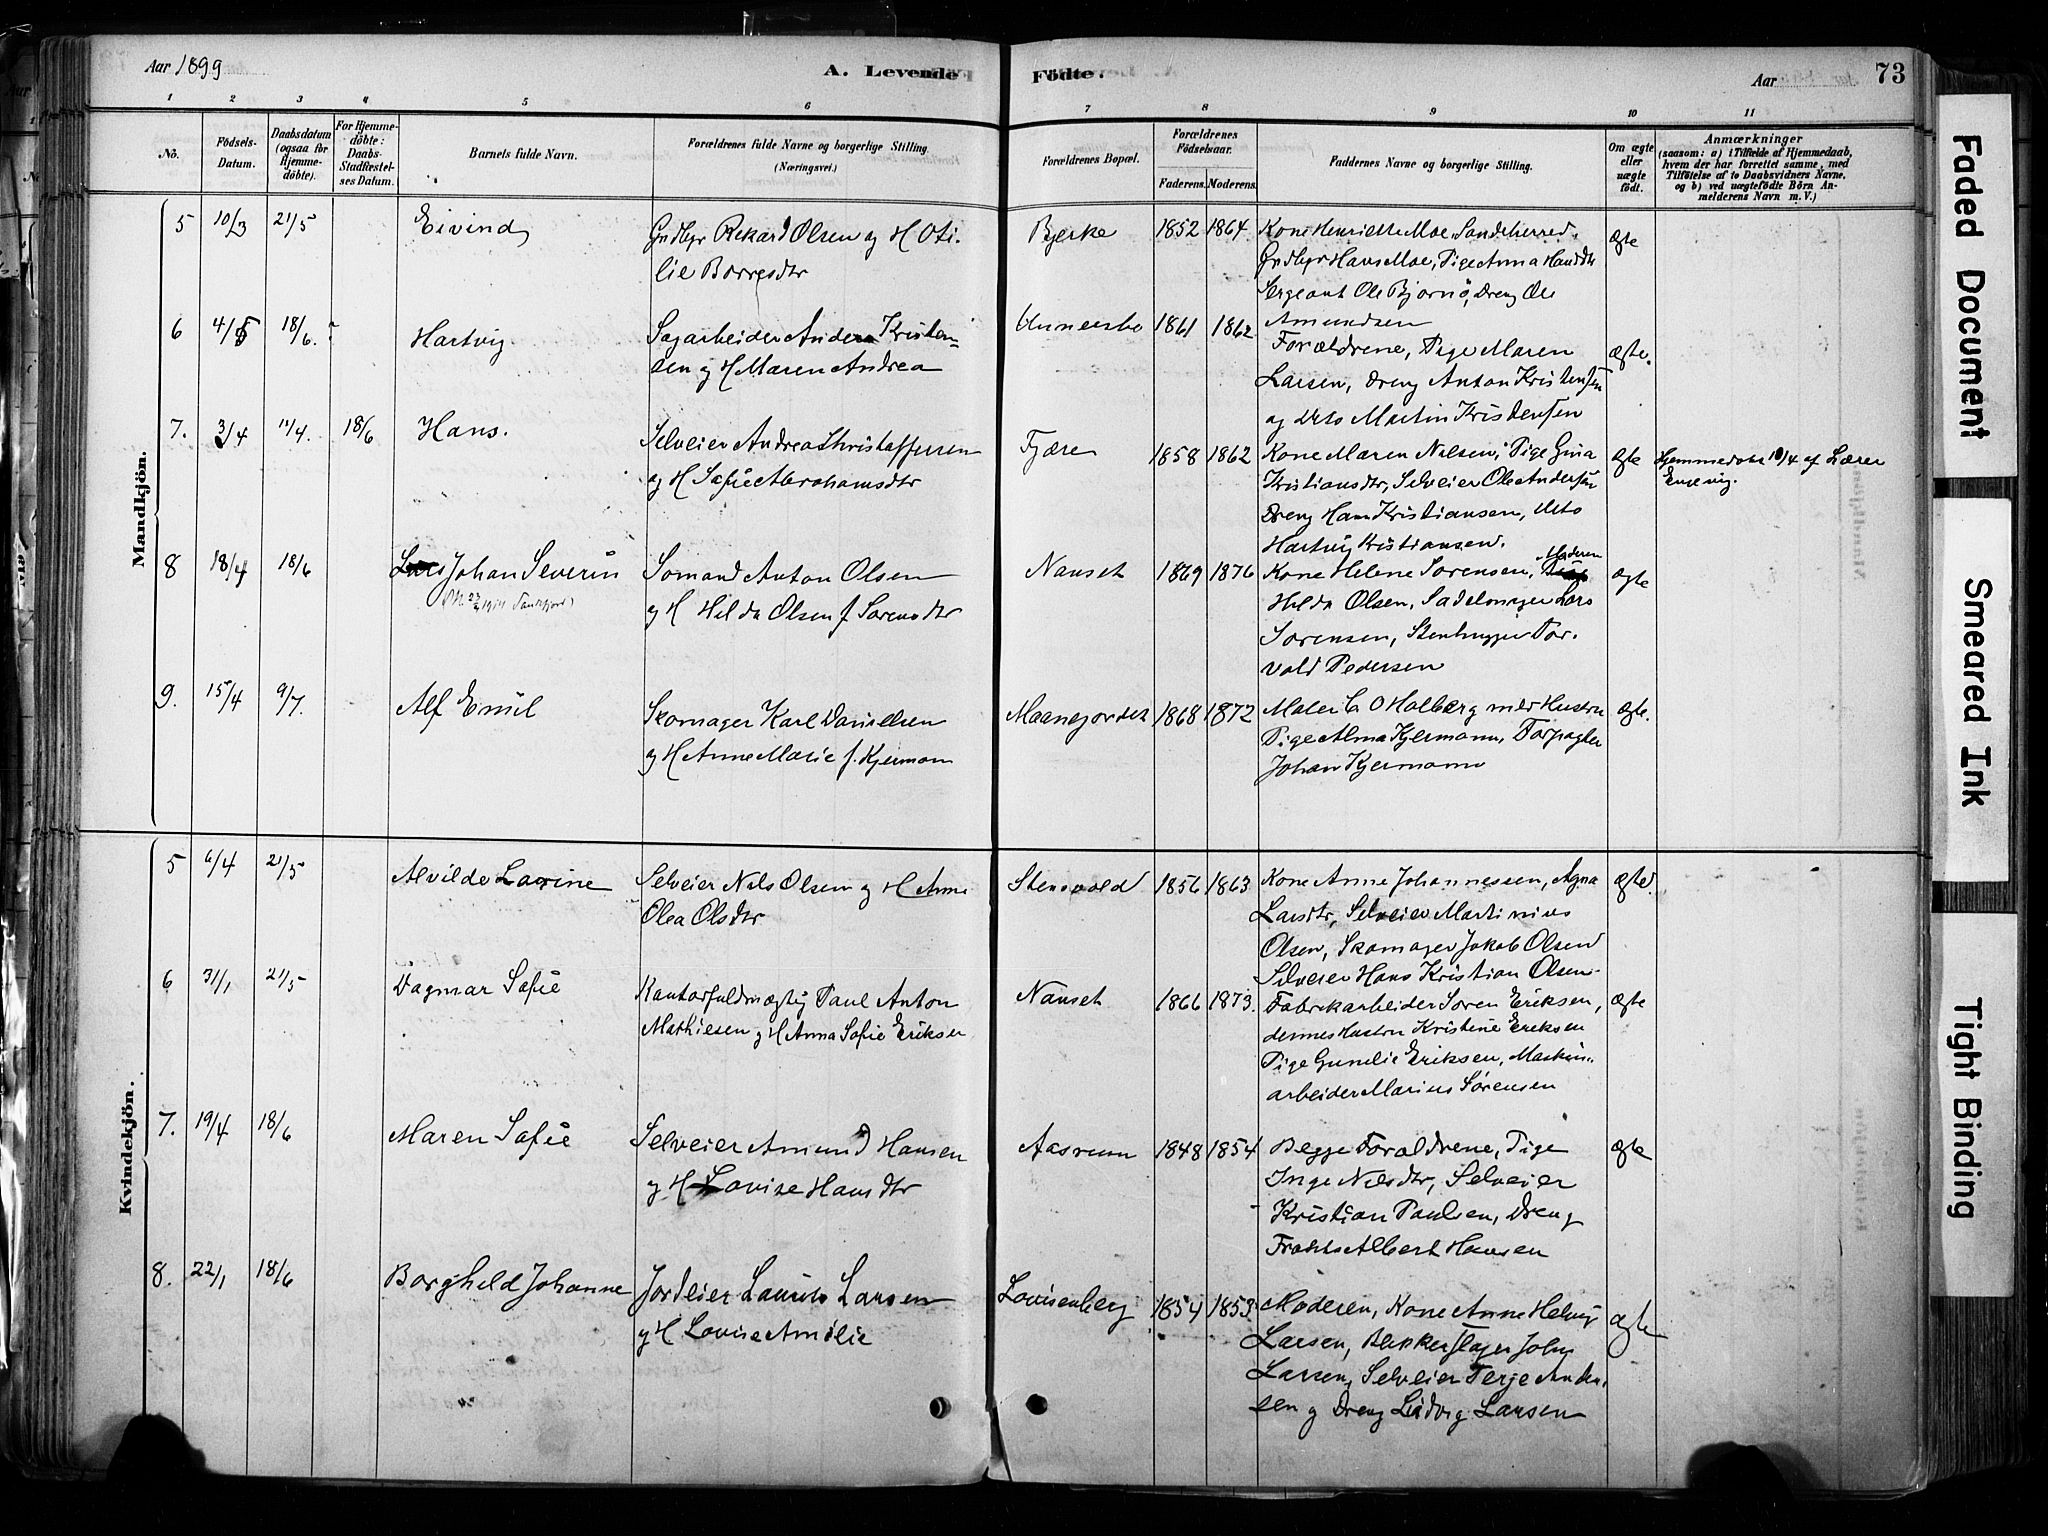 Aar 1899
A. Levende Födte.
Aar
73
1 2 3 4 5 6 7 8 9 10 11
No.
Födsels-Datum.
Daabsdatum (ogsaa for Hjemmedöbte).
For Hjemmedöbte: Daabs-Stadfestelses Datum.
Barnets fulde Navn.
Forældrenes fulde Navne og borgerlige Stilling. (Næringsvei.)
Forældrenes Bopæl.
Forældrenes Födselsaar.
Faderens. Moderens.
Faddernes Navne og borgerlige Stilling.
Om ægte eller uægte födt.
Anmærkninger
(saasom: a) i Tilfælde af Hjemmedaab, hvem der har forrettet samme, med Tilföielse af to Daabsvidners Navne, og b) ved uægtefödte Börn Anmelderens Navn m. V.)
Mandkjön.
5 10/3 21/5 Eivind
Grdbgr Rikard Olsen og H Oti-
lie Borresdtr
Bjerke 1852 1864
Kone Henriette Moe, Sandeherred,
Grdbgr Hans Moe, Pige Anna Hansdtr
Sergeant Ole Bjornö, Dreng Ole
Amundsen
ægte
6 4/5 18/6. Hartvig
Sagarbeider Anders Kristen-
sen og H Maren Andrea
1861 1862
Forældrene, Pige Maren
Larsen, Dreng Anton Kristensen
og dito Martin Kristensen
ægte.
7. 3/4 11/4. 18/6 Hans.
Selveier Andreas Kristoffersen
og H Sofie Abrahamsdtr
Fjære 1858 1862
Kone Maren Nilsen, Pige Gina
Kristiansdtr, Selveier Ole Andersen
Dreng Hans Kristiansen, dito
Hartvig Kristiansen.
ægte
Hjemmedöbt 10/4 af Lærer
Engevig.
8 18/4 18/6 Lars Johan Severin
Somand Anton Olsen
og H Hilda Olsen f. Sorensdtr
Nanset 1869 1876
Kone Helene Sorensen, Moderen
Hilda Olsen, Sadelmager Lars
Sorensen, Stenhugger Tor-
vald Pedersen
ægte
9. 15/4 9/7. Alf Emil
Skomager Karl Danielsen
og H Anne Marie f. Kjermann
Maanejordet 1868 1872
Maler C O Holberg med Hustru
Pige Alma Kjermann, Forpagter
Johan Kjermann
ægte.
Kvindekjön.
5 6/4 21/5 Alvilde Lavine
Selveier Nils Olsen og H Anne
Olea Olsdtr
Stensvold 1856 1863
Kone Anne Johannessen, Agna
Larsdtr, Selveier Martinius
Olsen, Skomager Jakob Olsen
Selveier Hans Kristian Olsen
ægte.
6 31/1 21/5 Dagmar Sofie
Kontorfuldmægtig Paul Anton
Mathiesen og H Anna Sofie Eriksen
Nanset 1866 1873.
Fabrikarbeider Soren Eriksen,
dennes Hustru Kristine Eriksen
Pige Gunelie Eriksen, Maskin-
arbeider Marius Sørensen
ægte
7. 19/4 18/6 Maren Sofie
Selveier Amund Hansen
og H Lovise Hansdtr
Aasrum 1848 1854
Begge Forældrene, Pige
Inge Nilsdtr, Selveier
Kristian Paulsen, Dreng
Frants Albert Hansen
ægte
8. 22/1 18/6 Borghild Johanne
Jordeier Laurits Larsen
og H Lovise Amilie
Lovisenberg 1854 1853
Moderen, Kone Anne Helvig
Larsen, Blikkenslager John
Larsen, Selveier Terje Ander-
sen og Dreng Ludvig Larsen
ægte
Faded Document
Smeared Ink
Tight Binding